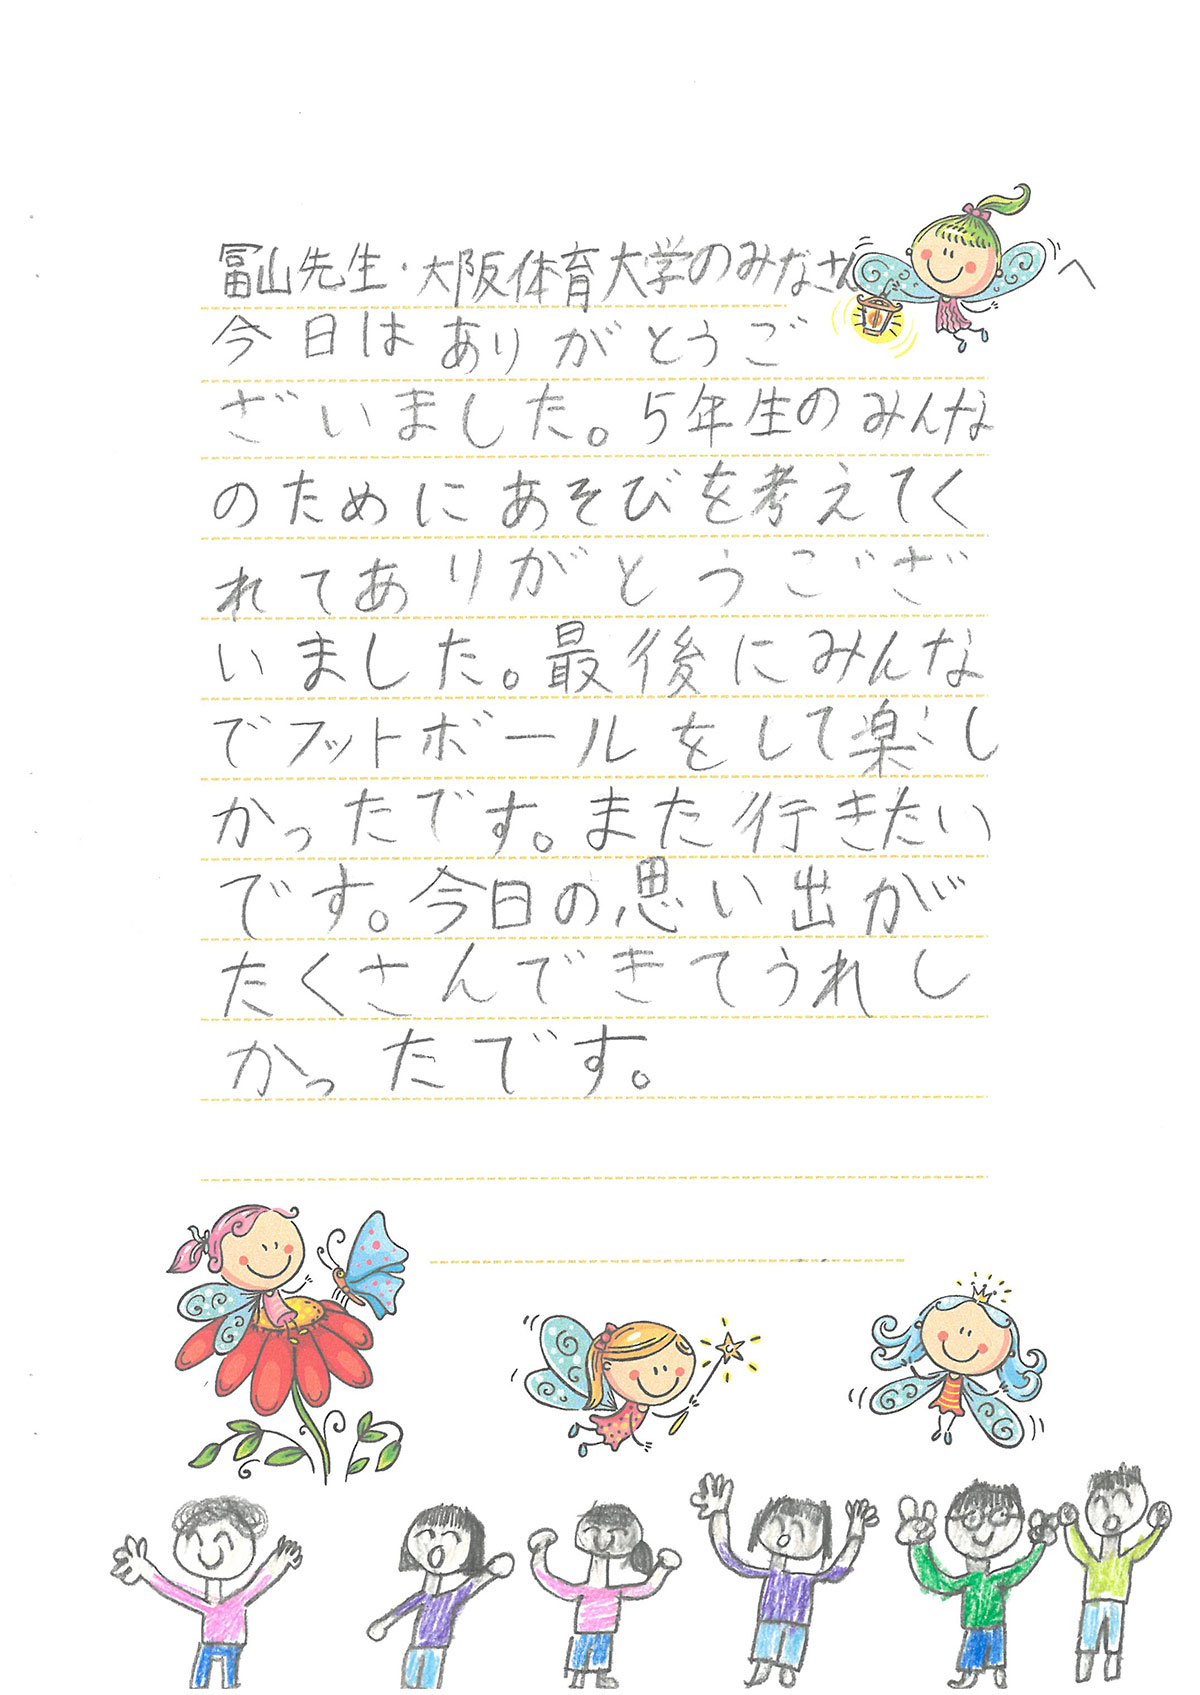 冨山先生・大阪体育大学のみなさんへ
今日はありがとうご
ざいました。5年生のみんな
のためにあそびを考えてく
れてありがとうござ
いました。最後にみんな
でフットボールをして楽し
かったです。また行きたい
です。今日の思い出が
たくさんできてうれし
かったです。